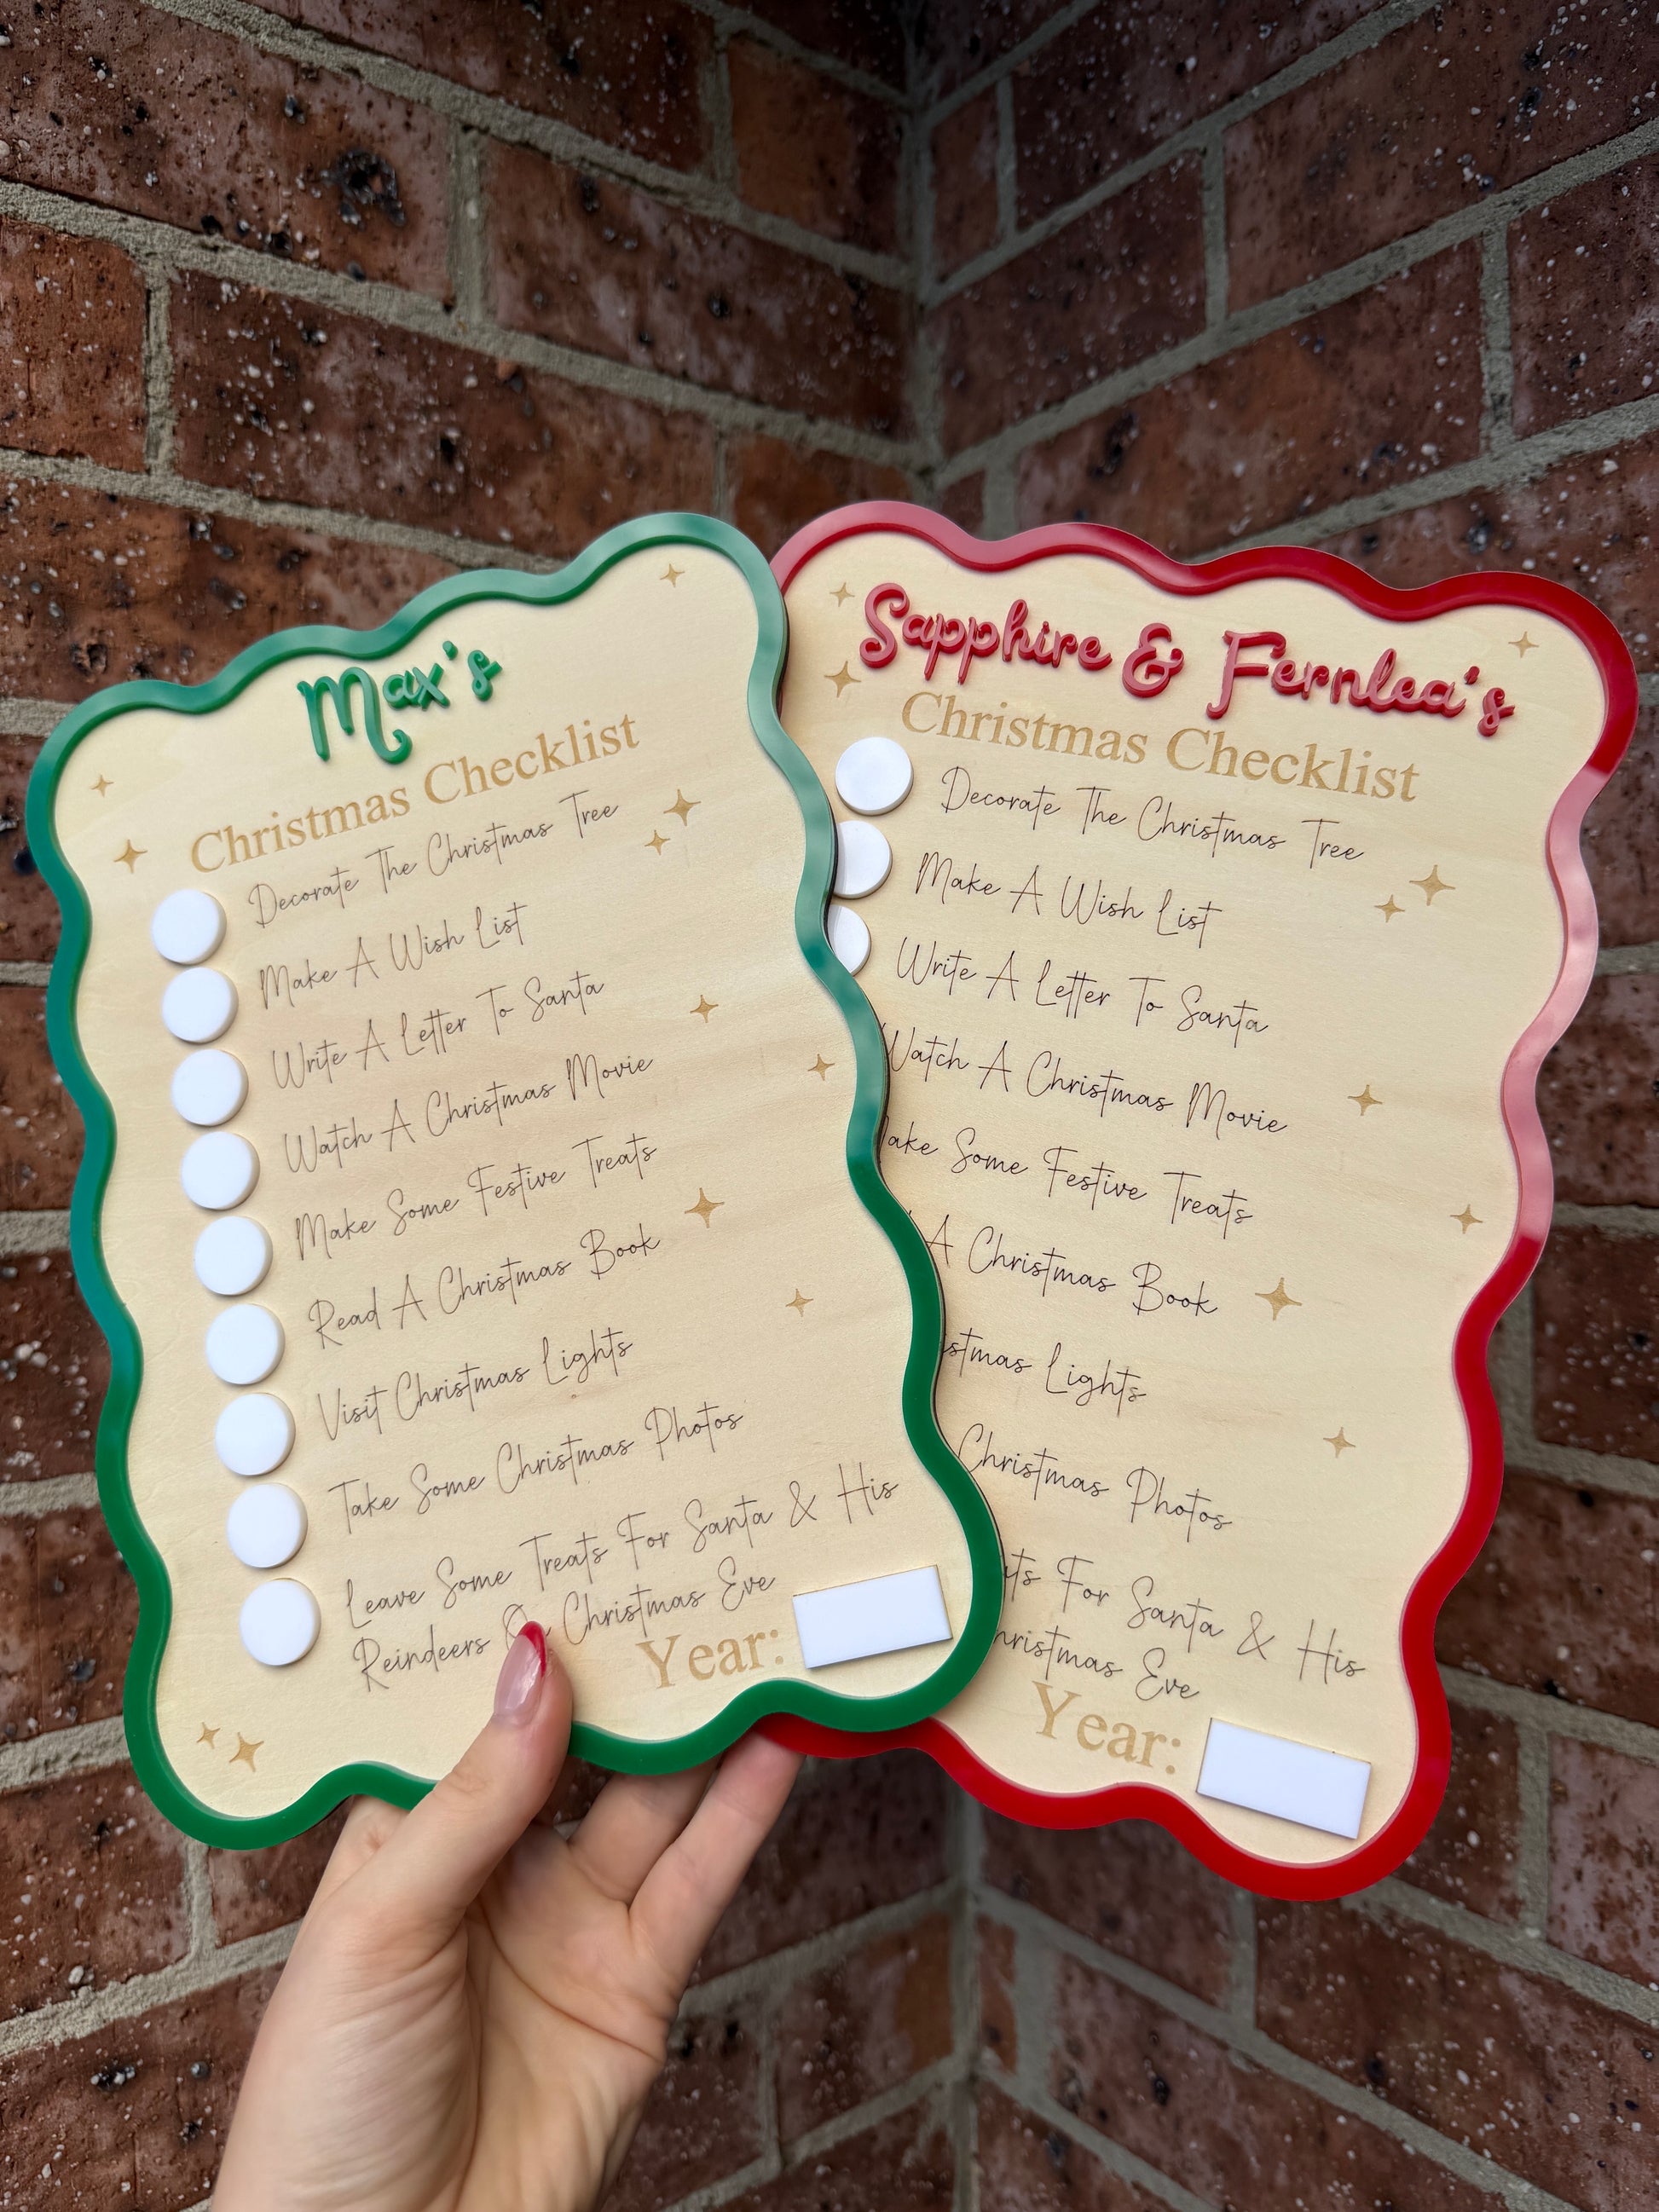 Max's
Christmas Checklist
Decorate The Christmas Tree
Make A Wish List
Write A Letter To Santa
Watch A Christmas Movie
Make Some Festive Treats
Read A Christmas Book
Visit Christmas Lights
Take Some Christmas Photos
Leave Some Treats For Santa & His
Reindeers On Christmas Eve
Year:
Sapphire & Fernlea's
Christmas Checklist
Decorate The Christmas Tree
Make A Wish List
Write A Letter To Santa
Watch A Christmas Movie
Make Some Festive Treats
A Christmas Book
Lights
Christmas Photos
For Santa & His
Eve
Year: